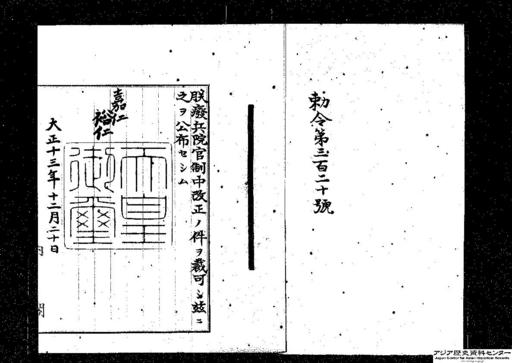 勅令第三百二十號
朕廢兵院官制中改正ノ件ヲ裁可シ茲ニ
之ヲ公布セシム
嘉仁
裕仁
天皇御璽
大正十三年十二月二十日
内閣
アジア歴史資料センター
Japan Center for Asian Historical Records